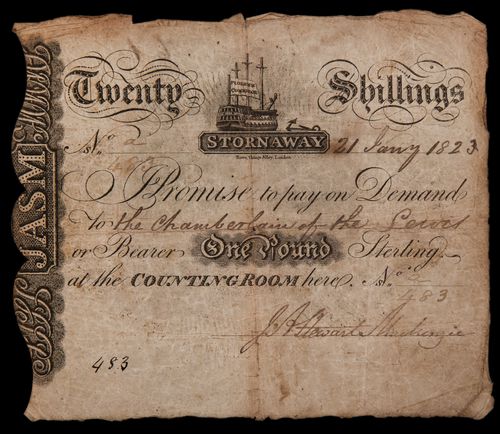 JASM
Twenty Shillings
STORNAWAY
No. 2 21 Jany 1823
483
I Promise to pay on Demand
to the Chamberlain of the Lewes
or Bearer One Pound Sterling
at the COUNTING ROOM here. No.
483
J A Stewart Mackenzie
483